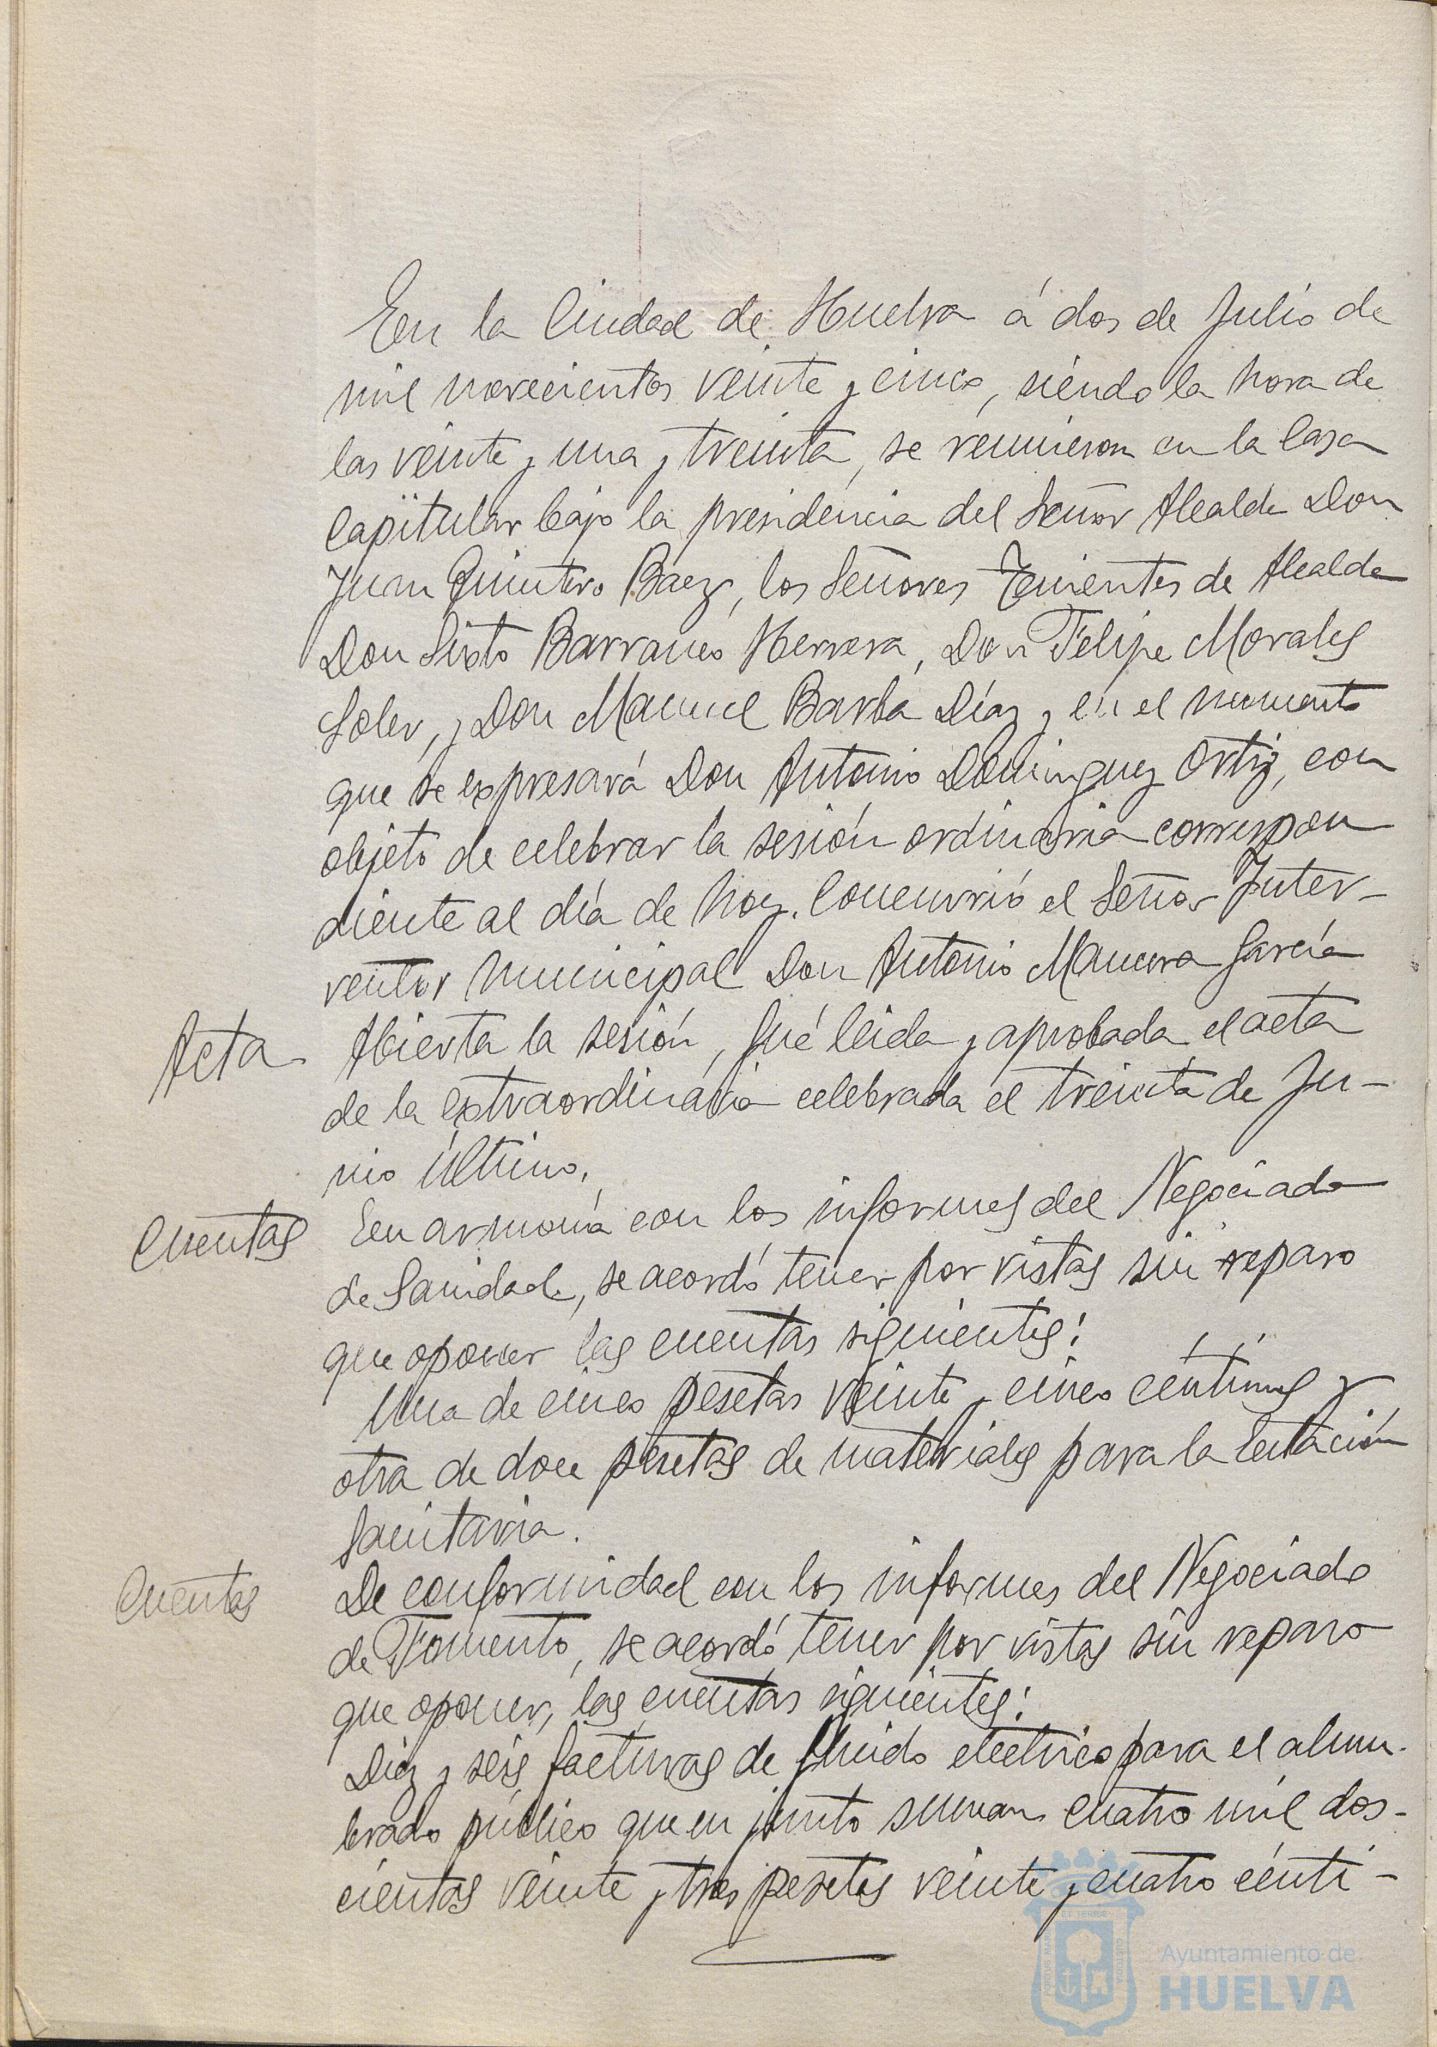 En la Ciudad de Huelva á dos de Julio de
mil novecientos veinte y cinco, siendo la hora de
las veinte y una y treinta, se reunieron en la Casa
Capitular bajo la presidencia del Señor Alcalde Don
Juan Quintero Baez, los Señores Tenientes de Alcalde
Don Sixto Barranco Herrera, Don Felipe Morales
Soler, y Don Manuel Barba Díaz y en el momento
que se expresará Don Antonio Dominguez Ortiz, con
objeto de celebrar la sesión ordinaria correspon
diente al día de hoy. Concurrió el Señor Inter-
ventor municipal Don Antonio Mancera García
Acta. Abierta la sesión, fué leida y aprobada el acta
de la extraordinaria celebrada el treinta de Ju-
nio último.
Cuentas En armonía con los informes del Negociado
de Sanidad, se acordó tener por vistas sin reparo
que oponer las cuentas siguientes:
Una de cinco pesetas veinte y cinco céntimos y
otra de doce pesetas de materiales para la Estación
Sanitaria.
Cuentas De conformidad con los informes del Negociado
de Fomento, se acordó tener por vistas sin reparo
que oponer, las cuentas siguientes:
Diez y seis facturas de fluido electrico para el alum-
brado público que en junto suman cuatro mil dos-
cientas veinte y tres pesetas veinte y cuatro cénti-
Ayuntamiento de
HUELVA